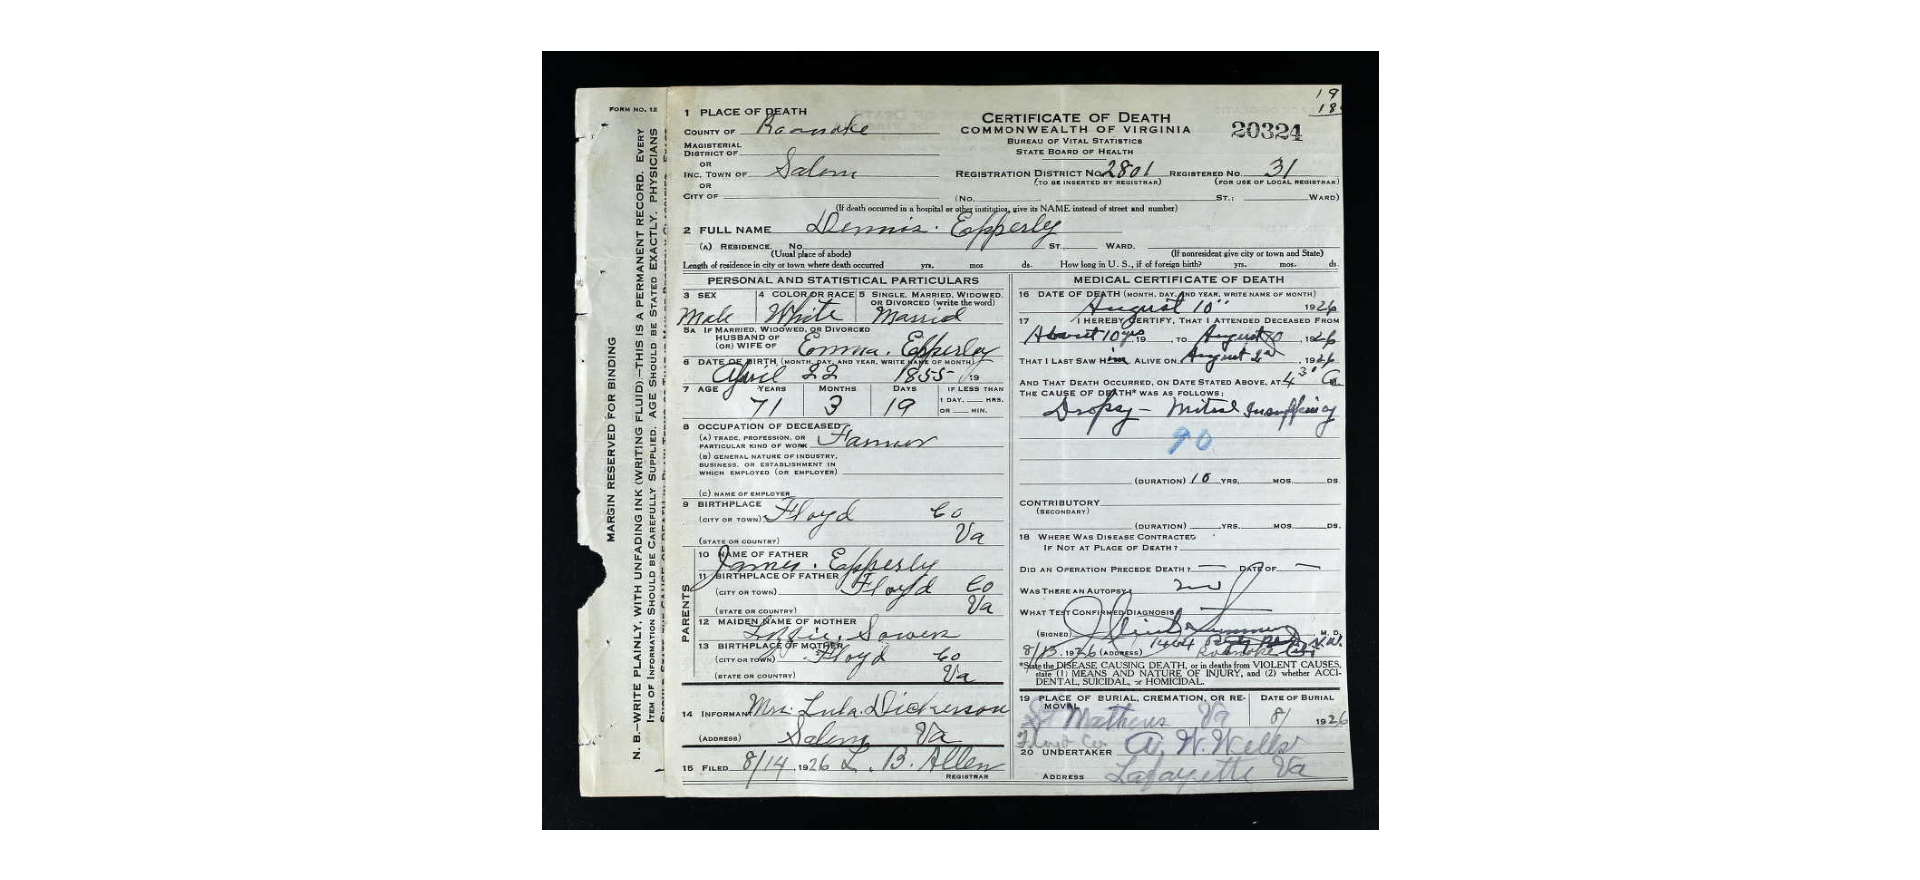 19
18
FORM NO. 12
MARGIN RESERVED FOR BINDING
N. B.—WRITE PLAINLY, WITH UNFADING INK (WRITING FLUID)—THIS IS A PERMANENT RECORD. EVERY
ITEM OF INFORMATION SHOULD BE CAREFULLY SUPPLIED. AGE SHOULD BE STATED EXACTLY. PHYSICIANS
CERTIFICATE OF DEATH
COMMONWEALTH OF VIRGINIA
BUREAU OF VITAL STATISTICS
STATE BOARD OF HEALTH
20324
1 PLACE OF DEATH
COUNTY OF Roanoke
MAGISTERIAL
DISTRICT OF
OR
INC. TOWN OF Salem
OR
CITY OF
REGISTRATION DISTRICT NO. 2801 REGISTERED NO. 31
(TO BE INSERTED BY REGISTRAR) (FOR USE OF LOCAL REGISTRAR)
(No. ST.; WARD)
(If death occurred in a hospital or other institution, give its NAME instead of street and number)
2 FULL NAME Dennis Epperly
(A) RESIDENCE. No. ST. WARD.
(Usual place of abode) (If nonresident give city or town and State)
Length of residence in city or town where death occurred yrs. mos ds. How long in U. S., if of foreign birth? yrs. mos. ds.
PERSONAL AND STATISTICAL PARTICULARS
3 SEX 4 COLOR OR RACE 5 SINGLE, MARRIED, WIDOWED,
OR DIVORCED (write the word)
Male White Married
5A IF MARRIED, WIDOWED, OR DIVORCED
HUSBAND OF
(OR) WIFE OF Emma. Epperley
6 DATE OF BIRTH (MONTH, DAY, AND YEAR. WRITE NAME OF MONTH)
April 22 1855 , 19
7 AGE YEARS MONTHS DAYS IF LESS THAN
1 DAY, HRS.
OR MIN.
71 3 19
8 OCCUPATION OF DECEASED
(A) TRADE, PROFESSION, OR
PARTICULAR KIND OF WORK Farmer
(B) GENERAL NATURE OF INDUSTRY,
BUSINESS, OR ESTABLISHMENT IN
WHICH EMPLOYED (OR EMPLOYER)
(C) NAME OF EMPLOYER
9 BIRTHPLACE
(CITY OR TOWN) Floyd Co
(STATE OR COUNTRY) Va
PARENTS
10 NAME OF FATHER
James. Epperly
11 BIRTHPLACE OF FATHER
(CITY OR TOWN) Floyd Co
(STATE OR COUNTRY) Va
12 MAIDEN NAME OF MOTHER
Sower
13 BIRTHPLACE OF MOTHER
(CITY OR TOWN) Floyd Co
(STATE OR COUNTRY) Va
14 INFORMANT Mrs. Lula. Dickerson
(ADDRESS) Salem Va
15 FILED 8/14, 1926 L. B. Allen
REGISTRAR
MEDICAL CERTIFICATE OF DEATH
16 DATE OF DEATH (MONTH, DAY, AND YEAR, WRITE NAME OF MONTH)
August 10 1926
17 I HEREBY CERTIFY, THAT I ATTENDED DECEASED FROM
About 10 yrs 19 , TO August 10 , 1926
THAT I LAST SAW Him ALIVE ON August , 1926
AND THAT DEATH OCCURRED, ON DATE STATED ABOVE, AT 4 30 a M.
THE CAUSE OF DEATH* WAS AS FOLLOWS:
Dropsy — Mitral Insufficiency
90
(DURATION) 10 YRS. MOS. DS.
CONTRIBUTORY
(SECONDARY)
(DURATION) YRS. MOS DS.
18 WHERE WAS DISEASE CONTRACTED
IF NOT AT PLACE OF DEATH?
DID AN OPERATION PRECEDE DEATH? — DATE OF —
WAS THERE AN AUTOPSY? no
WHAT TEST CONFIRMED DIAGNOSIS
(SIGNED) M. D.
8/13, 1926 (ADDRESS) 1464
Roanoke
*State the DISEASE CAUSING DEATH, or in deaths from VIOLENT CAUSES,
state (1) MEANS AND NATURE OF INJURY, and (2) whether ACCI-
DENTAL, SUICIDAL, or HOMICIDAL.
19 PLACE OF BURIAL, CREMATION, OR RE- DATE OF BURIAL
MOVAL
St Mathews Va 8/ 1926
Floyd Co.
20 UNDERTAKER A. W. Wells
ADDRESS Lafayette Va